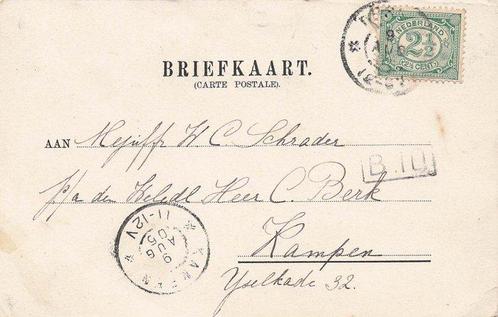 NEDERLAND
2½
(2½ CENT)
BRIEFKAART.
(CARTE POSTALE).
AAN Mejuffr W C Schrader
B.10
p/a den Weledl Heer C. Berk
Kampen
Yselkade 32.
KAMPEN
9
AUG
05
11-12V